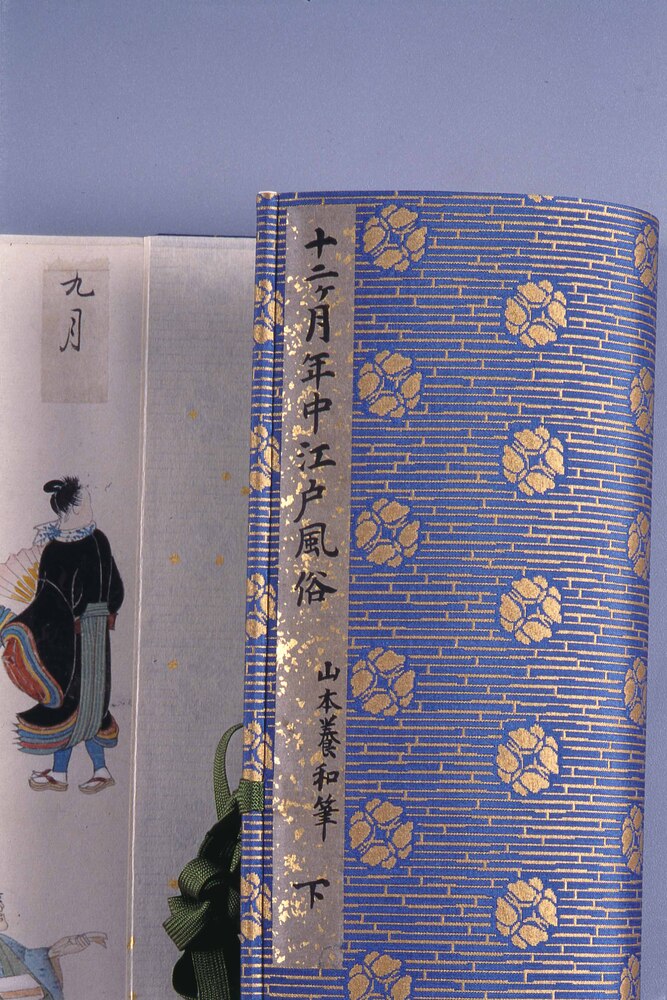 十二ヶ月年中江戸風俗
山本養和筆
下
九月